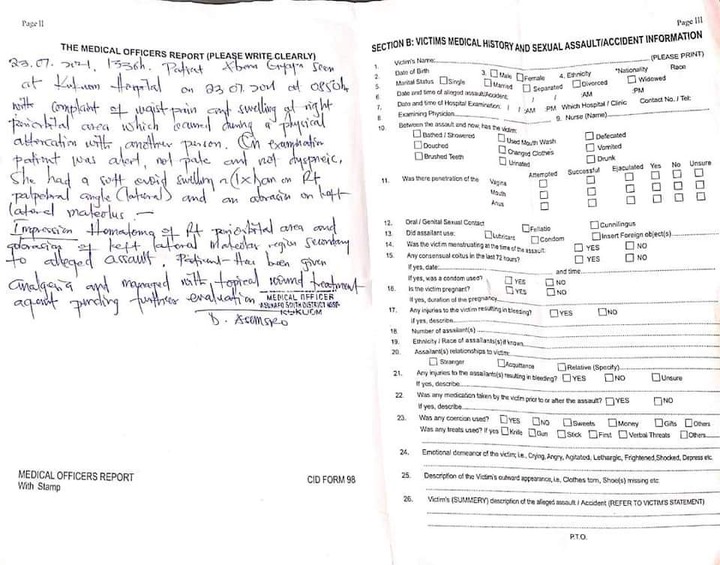 Page II
THE MEDICAL OFFICERS REPORT (PLEASE WRITE CLEARLY)
23.07.2021, 1336h. Patient seen
at Hospital on 23.07.2021 at
with complaint of waist pain and swelling at right
periorbital area which occurred during a physical
altercation with another person. On examination
patient was alert, not pale and not dyspneic,
She had a soft ovoid swelling on Rt
palpebral angle (lateral) and an abrasion on left
lateral maleolus. —
Impression Hematoma of Rt periorbital area and
abrasion of Left lateral Maleolar region secondary
to alleged assault. Patient has been given
analgesia and managed with topical wound treatment
agent pending further evaluation
MEDICAL OFFICER
ASUNAFO SOUTH DISTRICT HOSP.
KUKUOM
MEDICAL OFFICERS REPORT
With Stamp
CID FORM 98
Page III
SECTION B: VICTIMS MEDICAL HISTORY AND SEXUAL ASSAULT/ACCIDENT INFORMATION
(PLEASE PRINT)
1. Victim's Name:
2. Date of Birth 3. Male Female 4. Ethnicity *Nationality Race
5. Marital Status Single Married Separated Divorced Widowed
6. Date and time of alleged assault/Accident. / / :AM :PM
7. Date and time of Hospital Examination: / / :AM :PM Which Hospital / Clinic Contact No. / Tel:
8. Examining Physician 9. Nurse (Name)
10. Between the assault and now, has the victim:
Bathed / Showered Used Mouth Wash Defecated
Douched Changed Clothes Vomited
Brushed Teeth Urinated Drunk
Attempted Successful Ejaculated Yes No Unsure
11. Was there penetration of the Vagina
Mouth
Anus
12. Oral / Genital Sexual Contact Fellatio Cunnilingus
13. Did assailant use: Lubricant Condom Insert Foreign object(s)
14. Was the victim menstruating at the time of the assault: YES NO
15. Any consensual coitus in the last 72 hours? YES NO
If yes, date: and time
If yes, was a condom used? YES NO
16. Is the victim pregnant? YES NO
If yes, duration of the pregnancy
17. Any injuries to the victim resulting in bleeding? YES NO
If yes, describe
18. Number of assailant(s)
19. Ethnicity / Race of assailants(s) if known
20. Assailant(s) relationships to victim:
Stranger Acquittance Relative (Specify)
21. Any injuries to the assailant(s) resulting in bleeding? YES NO Unsure
If yes, describe
22. Was any medication taken by the victim prior to or after the assault? YES NO
If yes, describe
23. Was any coercion used? YES NO Sweets Money Gifts Others
Was any treats used? If yes Knife Gun Stick First Verbal Threats Others
24. Emotional demeanor of the victim; i.e., Crying, Angry, Agitated, Lethargic, Frightened, Shocked, Depress etc
25. Description of the Victim's outward appearance, i.e, Clothes torn, Shoe(s) missing etc
26. Victim's (SUMMERY) description of the alleged assault / Accident (REFER TO VICTIM'S STATEMENT)
P.T.O.